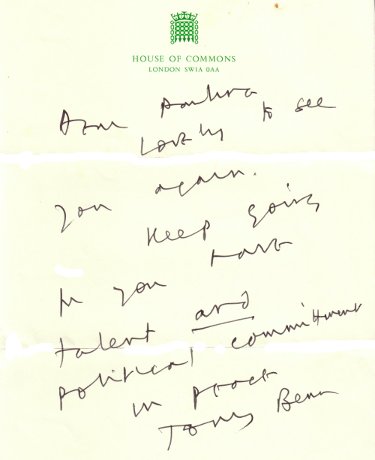 HOUSE OF COMMONS
LONDON SW1A 0AA
Dear
Lovely to see
you again.
Keep going
for you have
talent and
political commitment
in
Tony Benn